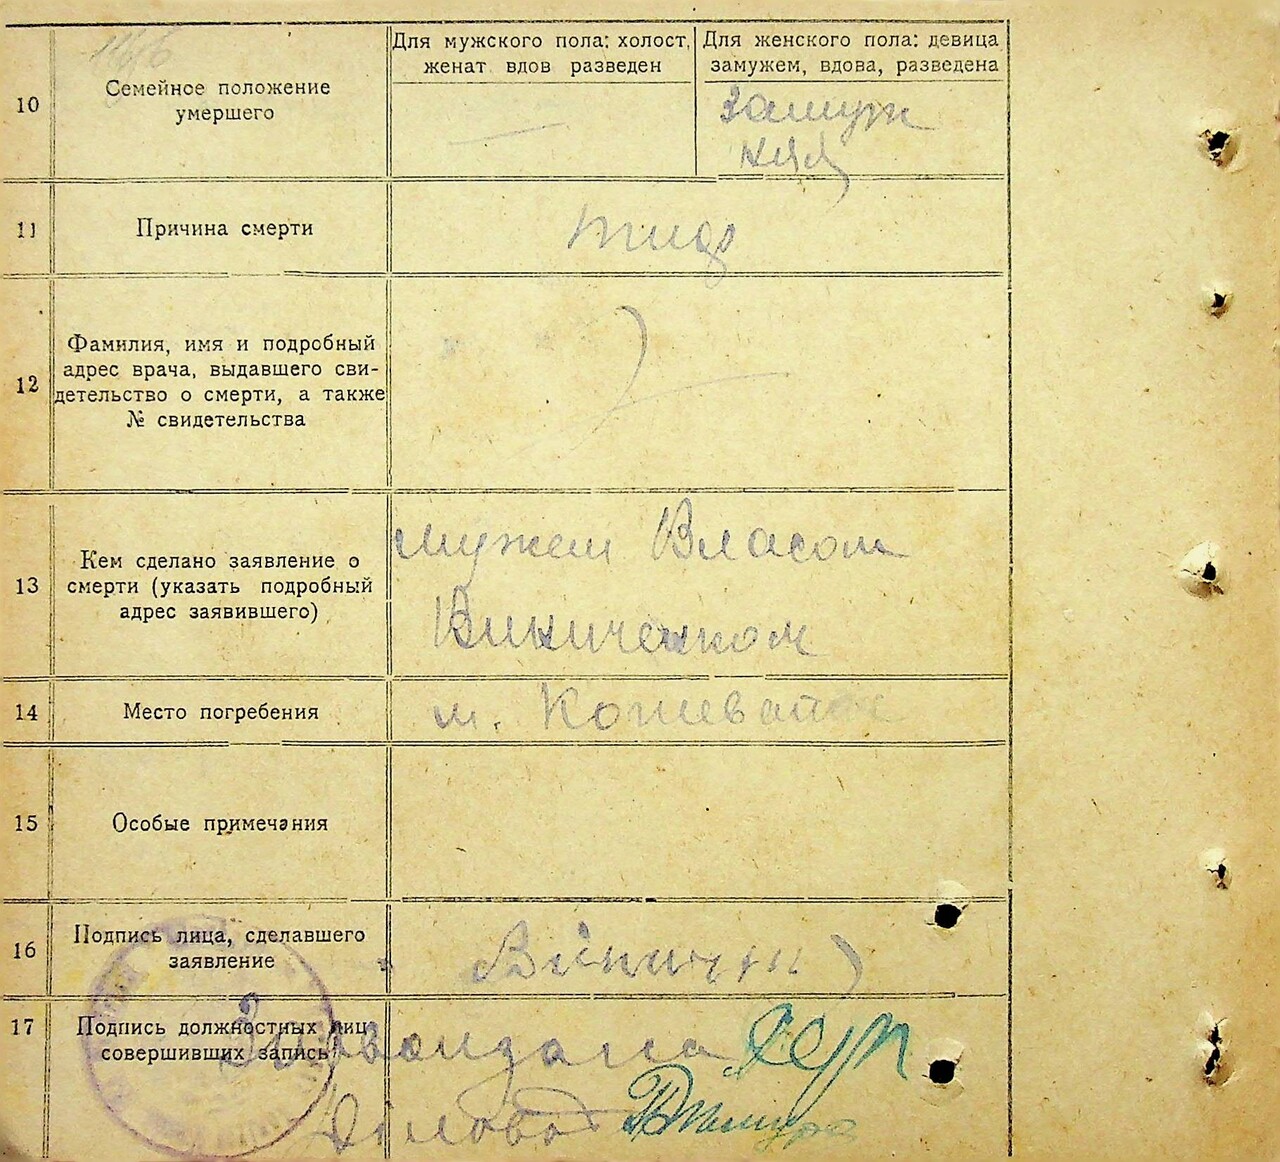 10
Семейное положение
умершего
Для мужского пола: холост,
женат вдов разведен
Для женского пола: девица
замужем, вдова, разведена
Замуж
няя
11
Причина смерти
тиф
12
Фамилия, имя и подробный
адрес врача, выдавшего сви-
детельство о смерти, а также
№ свидетельства
13
Кем сделано заявление о
смерти (указать подробный
адрес заявившего)
мужем Власом
Виниченком
14
Место погребения
м.
15
Особые примечания
16
Подпись лица, сделавшего
заявление
17
Подпись должностных лиц
совершивших запись
Діловод